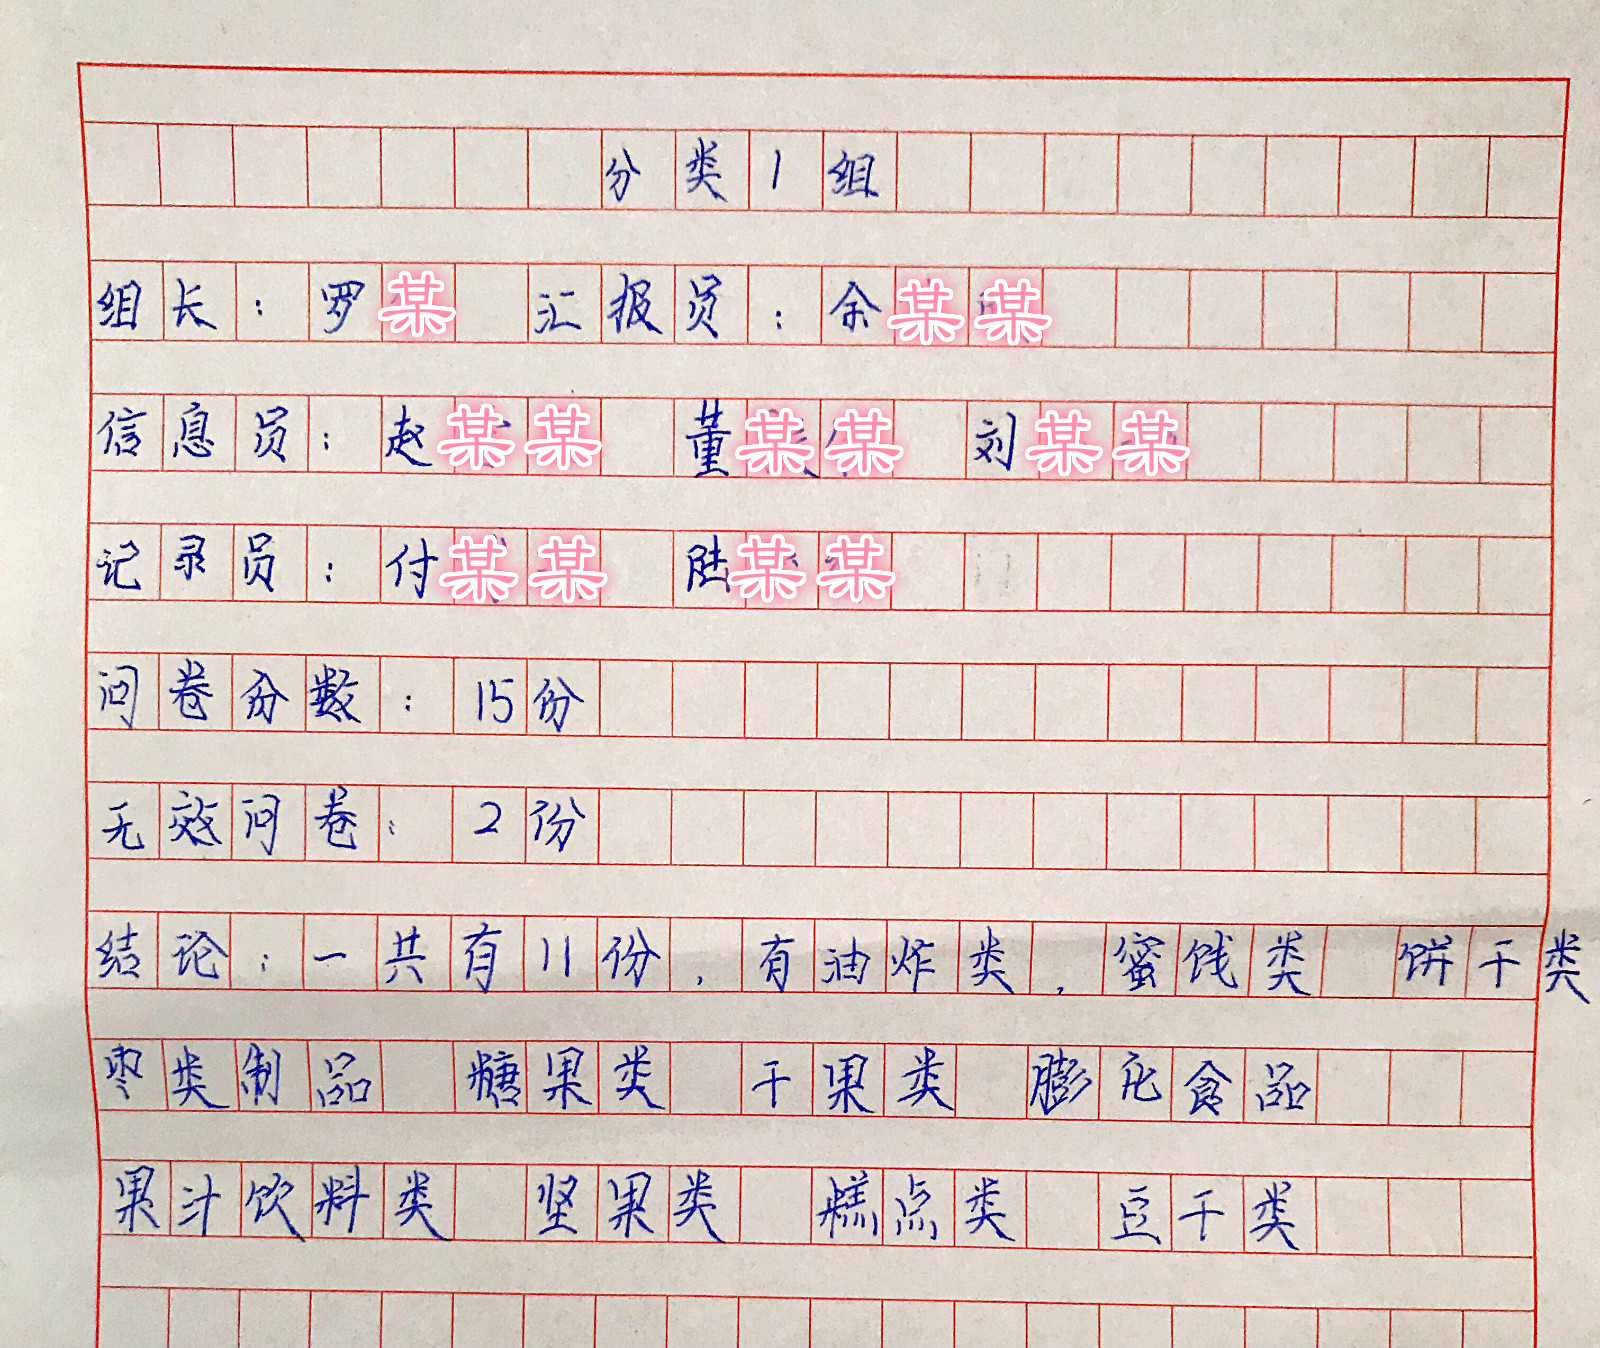 分类1组
组长：罗某 汇报员：余某某
信息员：赵某某 董某某 刘某某
记录员：付某某 陆某某
问卷分数：15份
无效问卷：2份
结论：一共有11份，有油炸类，蜜饯类 饼干类
枣类制品 糖果类 干果类 膨化食品
果汁饮料类 坚果类 糕点类 豆干类